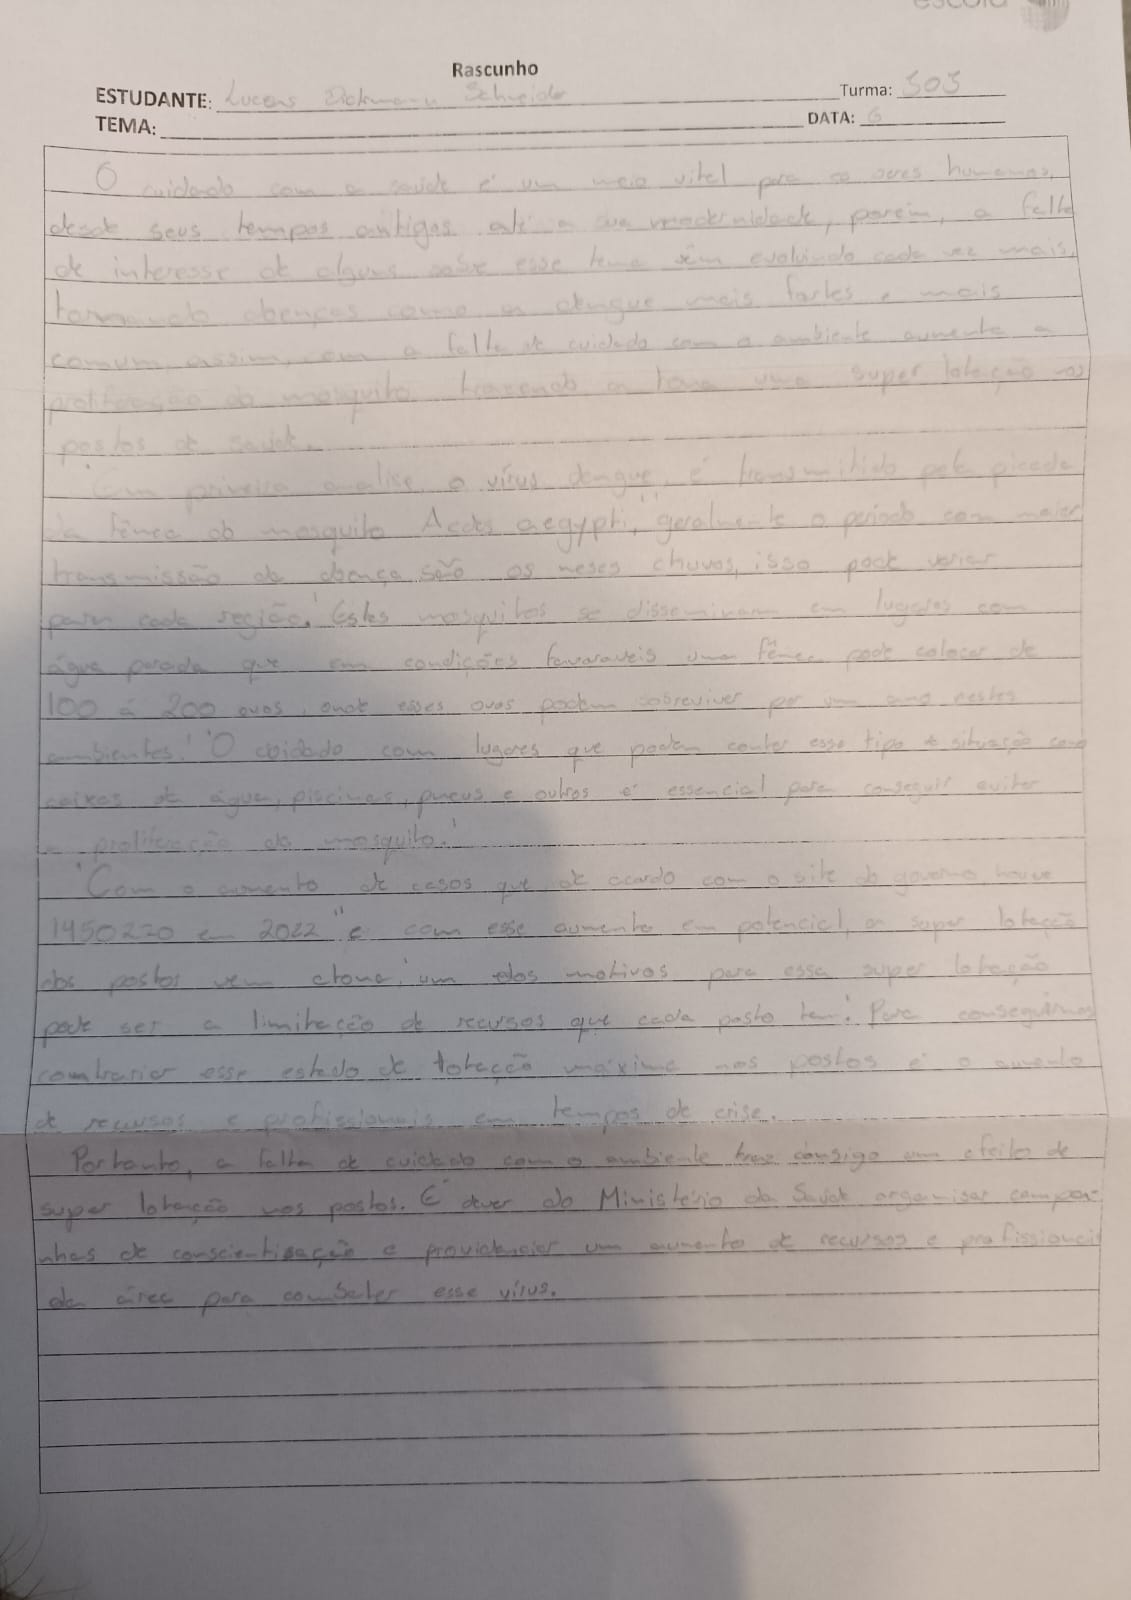 escola
Rascunho
ESTUDANTE: Lucas Dickmann Schneider Turma: 303
TEMA: DATA: 6
O cuidado com a saúde é um meio vital para os seres humanos,
desde seus tempos antigos até a sua modernidade, porém, a falta
de interesse de alguns sobre esse tema vêm evoluindo cada vez mais,
tornando doenças como a dengue mais fortes e mais
comum, assim, com a falta de cuidado com o ambiente aumenta a
proliferação do mosquito trazendo a tona uma super lotação nos
postos de saúde.
Em primeira analise, o vírus dengue, é transmitido pela picada
da fêmea do mosquito "Aedes aegypti", geralmente o periodo com maior
transmissão da doença são os meses chuvos, isso pode variar
para cada região. Estes mosquitos se disseminam em lugares com
água parada que em condições favoraveis uma fêmea pode colocar de
100 á 200 ovos, onde esses ovos podem sobreviver por um ano nestes
ambientes. O coidado com lugares que podem conter esse tipo de situação como
caixas de água, piscinas, pneus e outros é essencial para conseguir evitar
a proliferação do mosquito.
Com o aumento de casos que, de acordo com o site do governo, houve
1450270 em 2022" e com esse aumento em potencial, a super lotação
dos postos vem atona, um dos motivos para essa super lotação
pode ser a limitação de recursos que cada posto tem. Para conseguirmos
contrariar esse estado de lotação máxima nos postos é o aumento
de recursos e profissionais em tempos de crise.
Portanto, a falta de cuidado com o ambiente traz consigo um efeito de
super lotação nos postos. É dever do Ministério da Saúde organisar campa-
nhas de conscientização e providenciar um aumento de recursos e profissionais
da área para combater esse vírus.